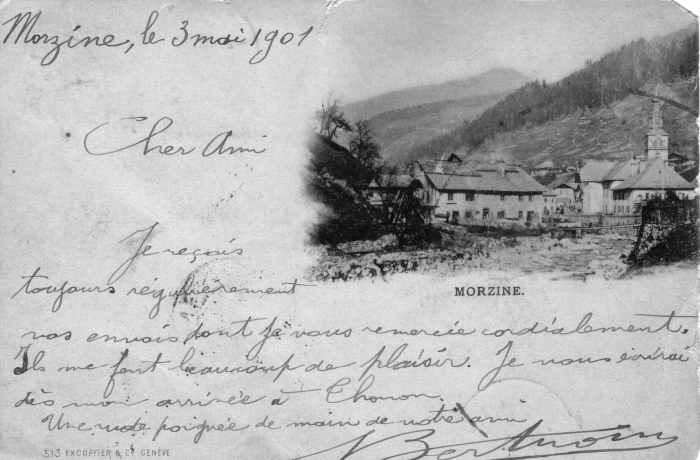 Morzine, le 3 mai 1901
Cher Ami
Je reçois
toujours régulièrement
MORZINE.
vos envois dont je vous remercie cordialement.
Ils me font beaucoup de plaisir. Je vous écrirai
dès mon arrivée à Thonon.
Une rude poignée de main de votre ami
313 EXCOFFIER & Cº GENÈVE